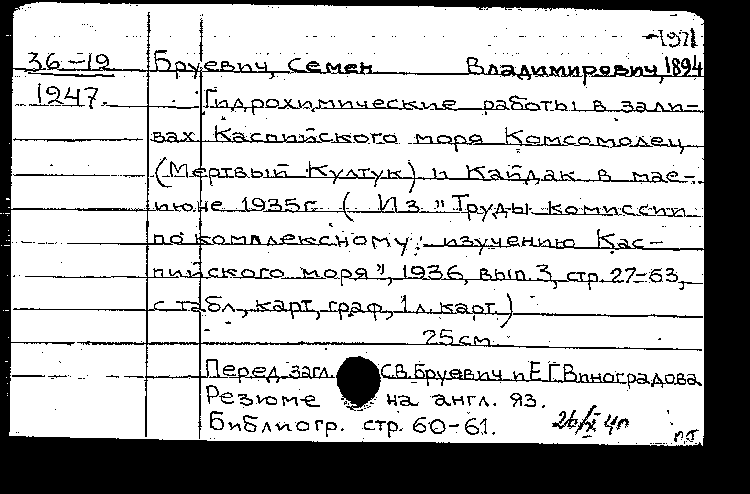 -1971
36-19 Бруевич, Семен Владимирович, 1894
1947. Гидрохимические работы в зали-
вах Каспийского моря Комсомолец
(Мертвый Култук) и Кайдак в мае-
июне 1935г. (Из "Труды комиссии
по комплексному изучению Кас-
пийского моря", 1936, вып. 3, стр. 27-63,
с табл., карт., граф., 1 л. карт.)
25 см.
Перед загл. С.В. Бруевич и Е.Г. Виноградова
Резюме на англ. яз.
Библиогр. стр. 60-61.
26/X 41